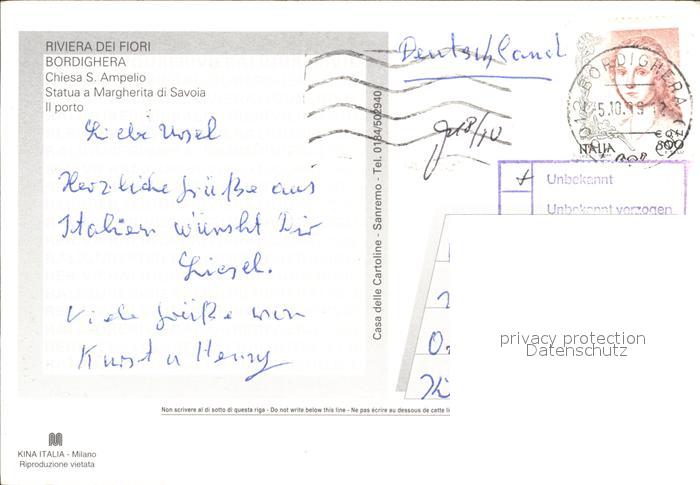 RIVIERA DEI FIORI
BORDIGHERA
Chiesa S. Ampelio
Statua a Margherita di Savoia
Il porto
Liebe Ursel
Herzliche Grüße aus
Italien wünscht Dir
Liesel.
Viele Grüße von
Kurt u Henny
Deutschland
18/10
Casa delle Cartoline - Sanremo - Tel. 0184/502940
BORDIGHERA
5.10.99
ITALIA
800
Unbekannt
Unbekannt verzogen
privacy protection
Datenschutz
Non scrivere al di sotto di questa riga - Do not write below this line - Ne pas écrire au dessous de cette li
KINA ITALIA - Milano
Riproduzione vietata